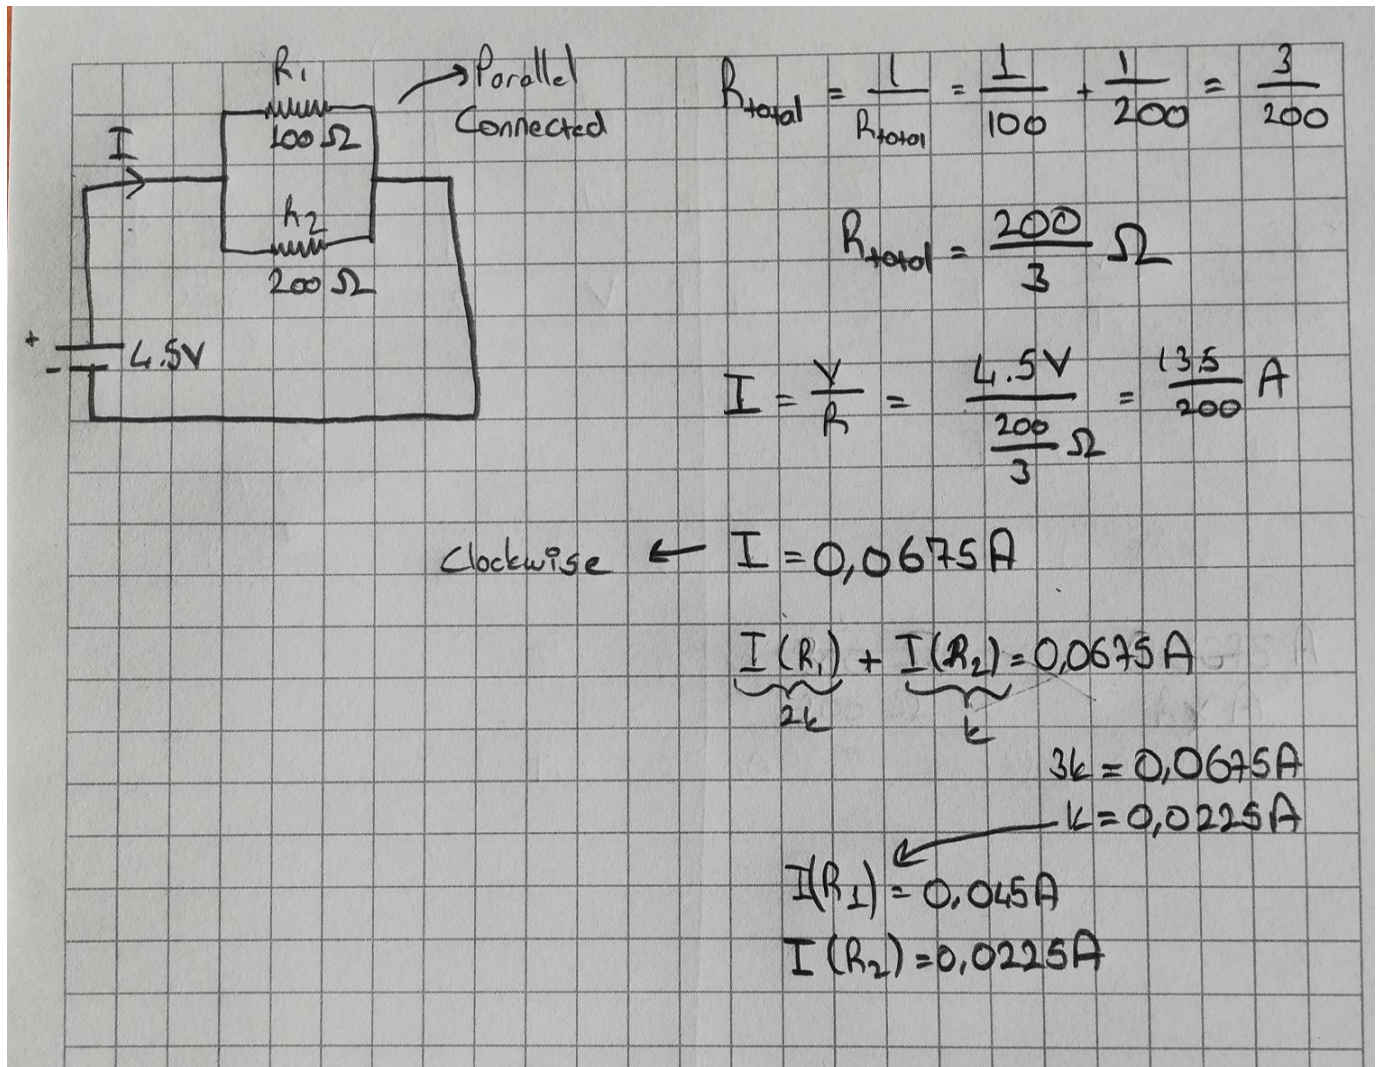 R₁
100 Ω
I
R₂
200 Ω
+
-
4.5V
Parallel
Connected
R_total = 1/R_total = 1/100 + 1/200 = 3/200
R_total = 200/3 Ω
I = V/R = 4.5V/(200/3 Ω) = 135/200 A
Clockwise ← I = 0,0675A
I(R₁) + I(R₂) = 0,0675A
2k k
3k = 0,0675A
k = 0,0225A
I(R1) = 0,045A
I(R₂) = 0,0225A